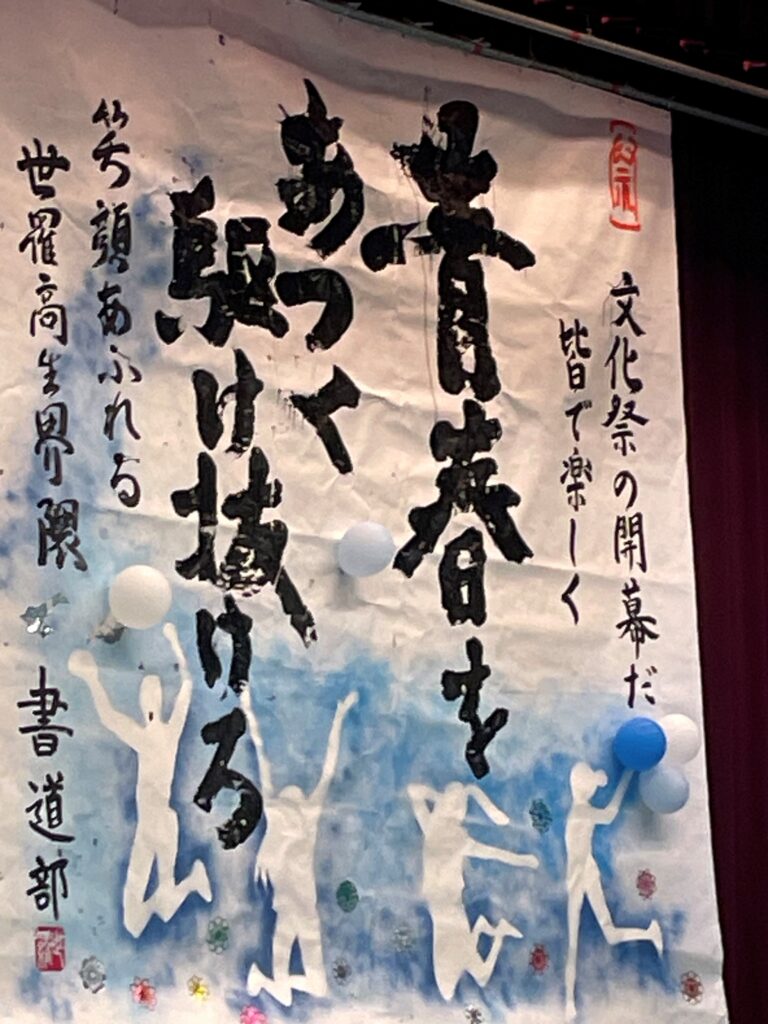 文化祭の開幕だ
皆で楽しく
青春を
あつく
駆け抜けろ
笑顔あふれる
世羅高生界隈
書道部